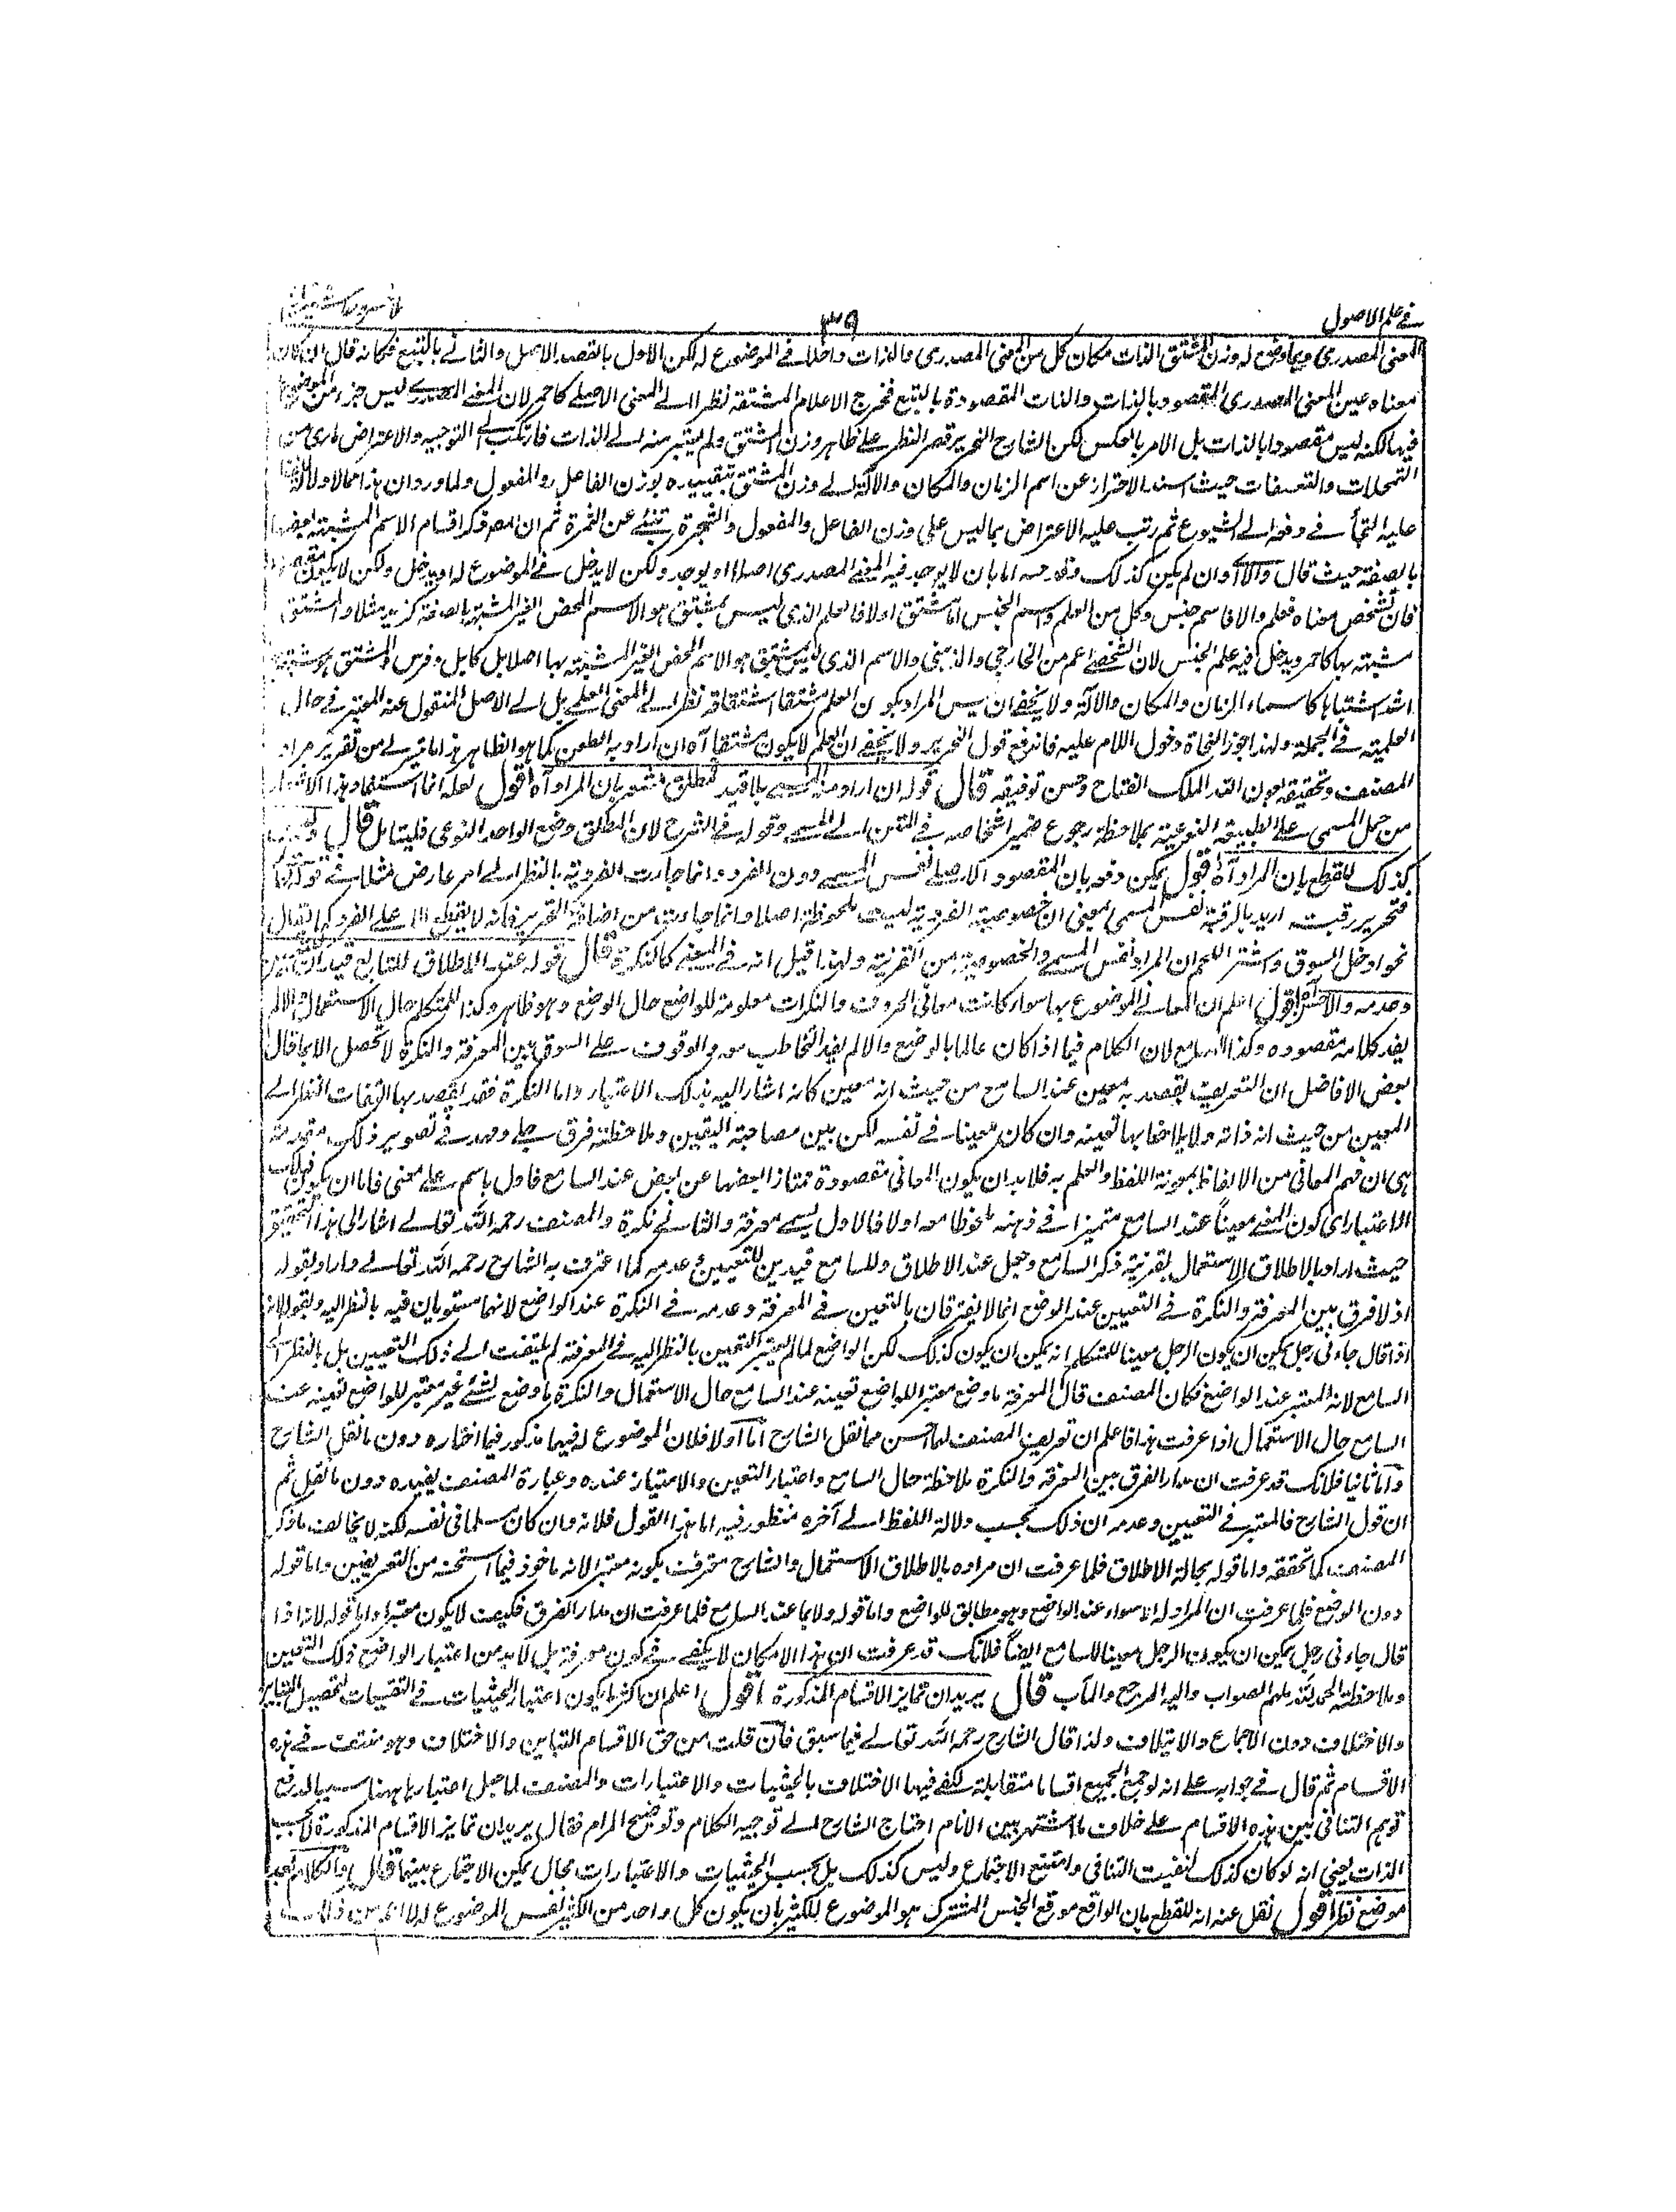 في علم الاصول
٣٩
المعنى المصدري وبما وضع له وزن المشتق الذات مكان كل من المعنى المصدري والذات داخلا في الموضوع له لكن الاول بالقصد الاصل والثاني بالتبع فكانه قال ان كان
معناه عين المعنى المصدري المقصود بالذات والذات المقصودة بالتبع فخرج الاعلام المشتقة نظرا الى المعنى الاصلي كاحمر لان المعنى المصدري ليس جزء من الموضوع
فيها لكنه ليس مقصودا بالذات بل الامر بالعكس لكن الشارح النحرير قصر النظر على ظاهر وزن المشتق ولم يعتبر منه الى الذات فارتكب التوجيه والاعتراض
التمحلات والتعسفات حيث اسند الاحتراز عن اسم الزمان والمكان والآلة الى وزن المشتق بتقييده بوزن الفاعل والمفعول ولما ورد ان هذا مما لا دلالة
عليه التجأ في دفعه الى الشيوع ثم رتب عليه الاعتراض بما ليس على وزن الفاعل والمفعول والشجرة تنبئ عن الثمرة ثم ان المص ذكر اقسام الاسم المشبهة بعضها
بالصفة حيث قال والا اى وان لم يكن كذلك اما بان لا يوجد فيه المعنى المصدري اصلا او يوجد ولكن لا يدخل في الموضوع له او يدخل ولكن لا يكون
فان تشخص معناه فعلم والا فاسم جنس وكل من العلم واسم الجنس اما مشتق او لا فالعلم الذي ليس بمشتق هو الاسم المحض الغير المشبهة بالصفة كزيد مثلا والمشتق
مشبهة بها كاحمر ويدخل فيه علم الجنس لان الشخصي اعم من الخارجي والذهني والاسم الذي ليس بمشتق هو الاسم المحض الغير المشبهة بها اصلا بل كابل وفرس والمشتق هو مشبهة
اشد اشتباها كاسماء الزمان والمكان والآلة ولا يخفى ان ليس المراد بكون العلم مشتقا اشتقاقه نظرا الى المعنى العلمي بل الى الاصل المنقول عنه المعتبر في حال
العلمية في الجملة ولهذا جوز النحاة دخول اللام عليه فاندفع قول النحرير ولا يخفى ان العلم لا يكون مشتقا آه ان اراد به الطعن كما هو الظاهر هذا ما تيسر لي من تقرير مراد
المصنف وتحقيقه بعون الله الملك الفتاح وحسن توفيقه قال قوله ان اراد منه المسمى بلا قيد فمطلق مشعر بان المراد آه اقول لعله انما استفاد هذا الاشعار
من حمل المسمى على الطبيعة النوعية بملاحظة رجوع ضمير اشخاصه في المتن الى المسمى وقوله في الشرح لان المطلق وضع الواحد النوعي فليتامل قال
كذلك للقطع بان المراد آه اقول يمكن دفعه بان المقصود الاصلي نفس المسمى دون الفرد وانما جاءت الفردية بالنظر الى امر عارض مثلا في قوله تعالى
فتحرير رقبة اريد بالرقبة نفس المسمى بمعنى ان خصوصية الفردية ليست ملحوظة اصلا وانما جاءت من اضافة التحرير فانه لا يقع الا على الفرد كما يقال
نحو ادخل السوق واشتر اللحم ان المراد نفس المسمى والخصوصية من القرينة ولهذا قيل انه في المعنى كالنكرة قال قوله عند الاطلاق للسامع قيد ان للتعيين
وعدمه والاحسن آه اقول اعلم ان المعاني الموضوع بها سواء كانت معاني الحروف والنكرات معلومة للواضع حال الوضع وهو ظاهر وكذا للمتكلم حال الاستعمال والا لم
يفد كلامه مقصوده وكذا السامع لان الكلام فيما اذا كان عالما بالوضع والا لم يفد التخاطب معه والوقوف على الفرق بين المعرفة والنكرة لا تحصل الا بما قال
بعض الافاضل ان التعريف يقصد به معين عند السامع من حيث انه معين كانه اشار اليه بذلك الاعتبار واما النكرة فقد يقصد بها التفات النفس الى
المعين من حيث انه ذاته ولا يلاحظ بها تعينه وان كان معينا في نفسه لكن بين مصاحبة التعيين وملاحظته فرق جلي ومهد في تصوير ذلك مقدمة
هي ان فهم المعاني من الالفاظ بمعونة اللفظ والعلم به فلا بد ان يكون المعاني مقصودة ممتازا بعضها عن بعض عند السامع فاذا دل باسم على معنى فاما ان يكون ذلك
الاعتبار اى كون المعنى معينا عند السامع متميزا في ذهنه ملحوظا معه او لا فالاول يسمى معرفة والثاني نكرة والمصنف رحمه الله تعالى اشار الى هذا التحقيق
حيث اراد بالاطلاق الاستعمال بقرينة ذكر السامع وجعل عند الاطلاق وللسامع قيدين للتعيين وعدمه كما اعترف به الشارح رحمه الله تعالى واراد بقوله
اذ لا فرق بين المعرفة والنكرة في التعيين عند الوضع انهما لا يفترقان بالتعين في المعرفة وعدمه في النكرة عند الواضع لانهما مستويان فيه بالنظر اليه وبقوله لانه
اذا قال جاءني رجل يمكن ان يكون الرجل معينا للمتكلم انه يمكن ان يكون كذلك لكن الواضع لما لم يعتبر التعيين بالنظر اليه في المعرفة لم يلتفت الى ذلك التعيين بل بالنظر الى
السامع لانه المعتبر عند الواضع فكان المصنف قال المعرفة ما وضع معتبر للواضع تعينه عند السامع حال الاستعمال والنكرة ما وضع لشئ غير معتبر للواضع تعينه عند
السامع حال الاستعمال اذا عرفت هذا فاعلم ان تعريف المصنف لهما احسن مما نقل الشارح اما اولا فلان الموضوع له فيهما مذكور فيما اختاره دون ما نقل الشارح
واما ثانيا فلانك قد عرفت ان مدار الفرق بين المعرفة والنكرة ملاحظة حال السامع واعتبار التعين والامتياز عنده وعبارة المصنف يفيده دون ما نقل ثم
ان قول الشارح فالمعتبر في التعيين وعدمه ان ذلك بحسب دلالة اللفظ الى آخره منظور فيه اما هذا القول فلانه وان كان مسلما في نفسه لكنه لا يخالف ما ذكر
المصنف كما تحققه واما قوله بحالة الاطلاق فلما عرفت ان مراده بالاطلاق الاستعمال والشارح معترف بكونه معتبرا لانه ماخوذ فيما استحسنه من التعريفين واما قوله
دون الوضع فلما عرفت ان المراد له لا سواء عند الواضع وهو مطابق للواضع واما قوله ولا بما عند السامع فلما عرفت ان مدار الفرق فكيف لا يكون معتبرا واما قوله لانه اذا
قال جاءني رجل يمكن ان يكون الرجل معينا للسامع ايضا فلانك قد عرفت ان هذا الامكان لا يكفي في كون معرفة بل لا بد من اعتبار الواضع ذلك التعيين
وملاحظته الحمد لله ملهم الصواب واليه المرجع والمآب قال يريد ان تمايز الاقسام المذكورة اقول اعلم ان اكثر ما يكون اعتبار الحيثيات في التقسيمات لتحصيل التباين
والاختلاف دون الاجماع والايتلاف ولذا قال الشارح رحمه الله تعالى فيما سبق فان قلت من حق الاقسام التباين والاختلاف وهو منتف في هذه
الاقسام ثم قال في جوابه على انه لو جمع الجميع اقساما متقابلة لكفى فيها الاختلاف بالحيثيات والاعتبارات والمصنف لما جعل اعتبارها ههنا سببا لدفع
توهم التنافي بين هذه الاقسام على خلاف ما اشتهر بين الانام احتاج الشارح الى توجيه الكلام وتوضيح المرام فقال يريد ان تمايز الاقسام المذكورة لا بحسب
الذات يعني انه لو كان كذلك لثبت التنافي وامتنع الاجتماع وليس كذلك بل بحسب الحيثيات والاعتبارات بحال يمكن الاجتماع بينهما قال والكلام بعد
موضع نظر اقول نقل عنه انه للقطع بان الواقع موقع الجنس المشترك هو الموضوع للكثير بان يكون كل واحد من الكثير نفس الموضوع له